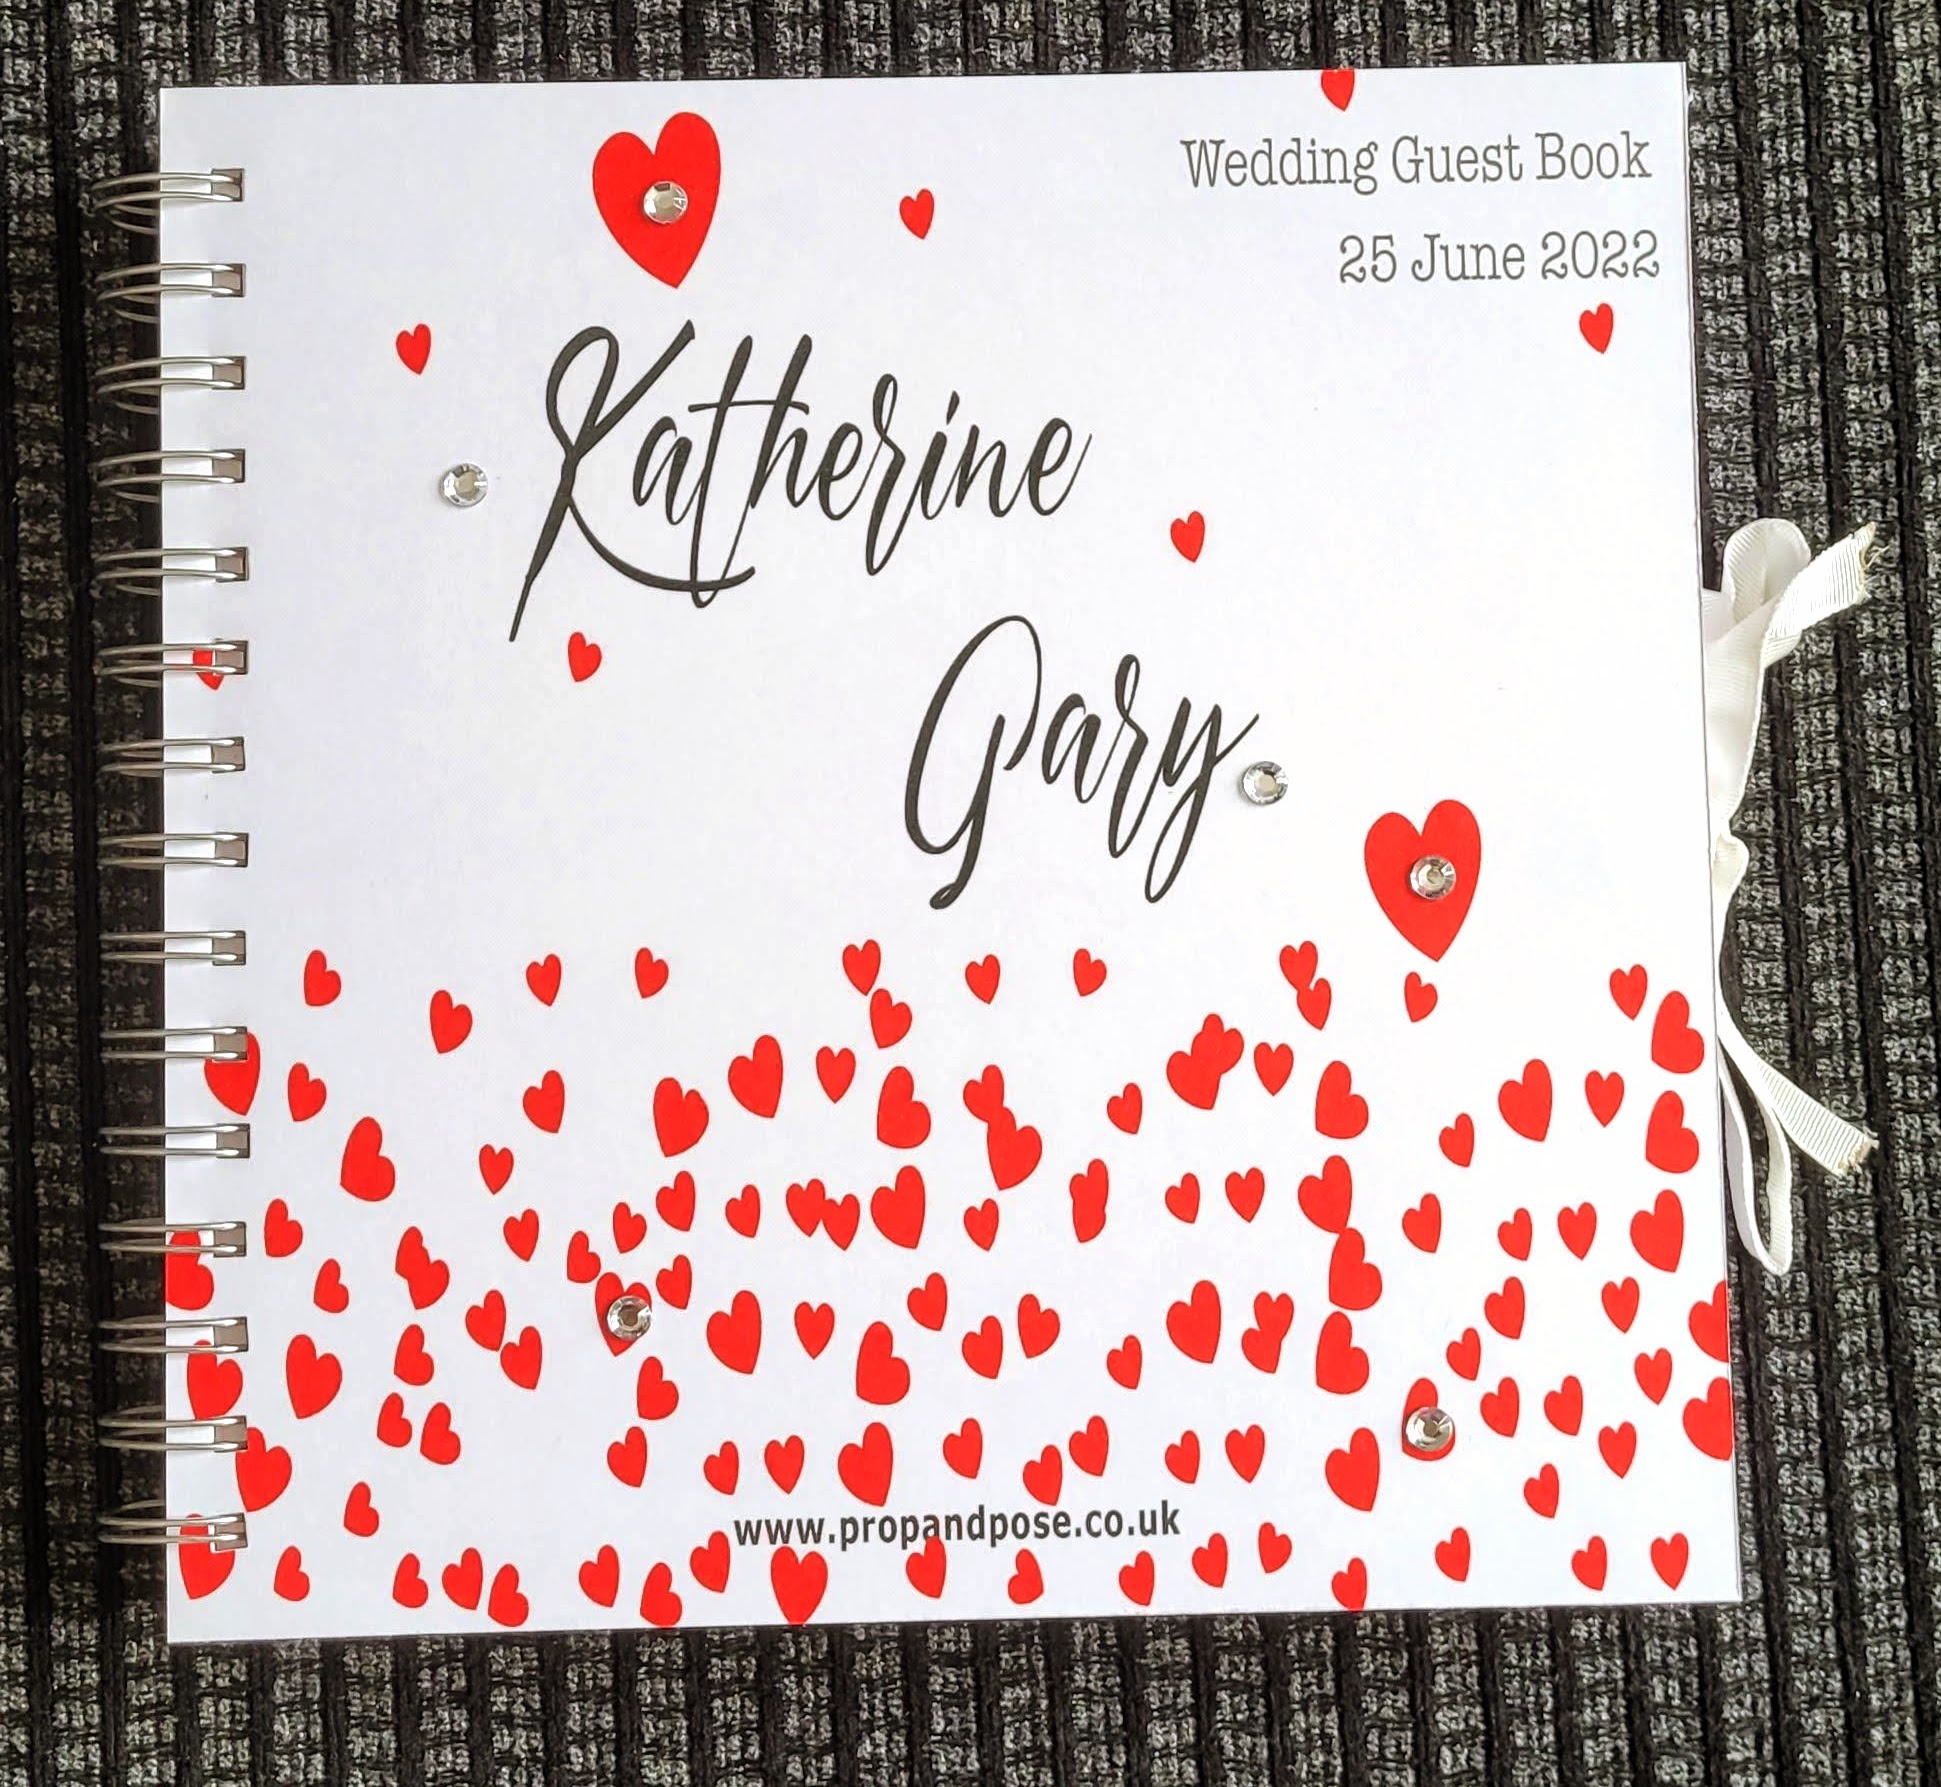 Wedding Guest Book
25 June 2022
Katherine
Gary
www.propandpose.co.uk